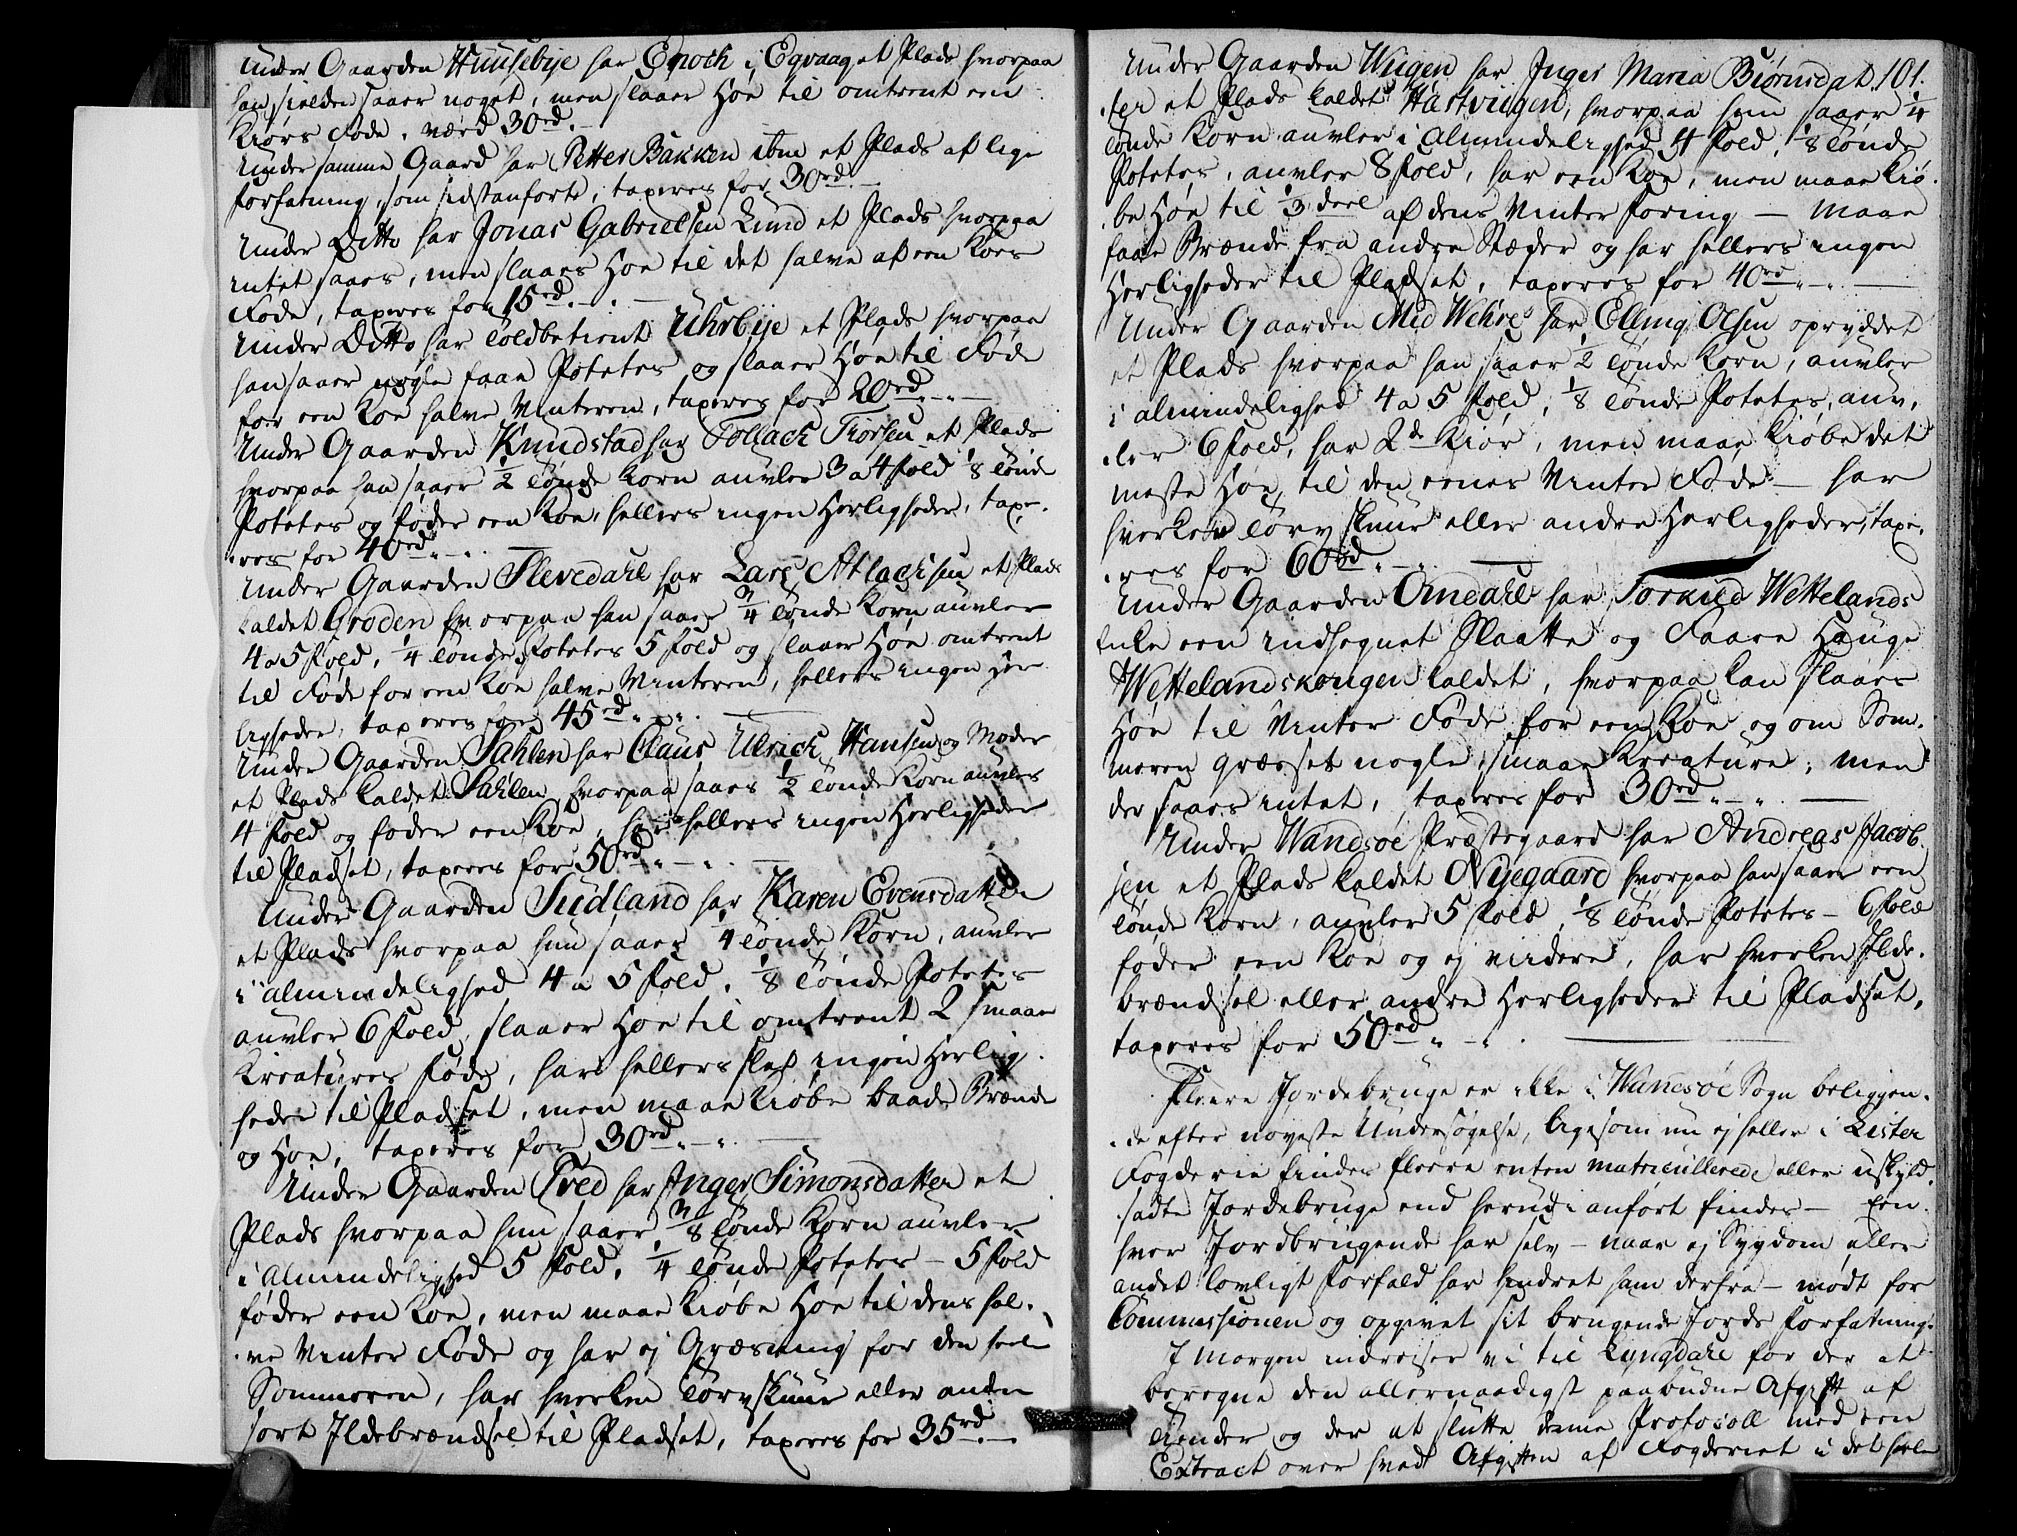 Under Gaarden Huusebye har Enoch i Eqvaag et Plads hvorpaa
han sielden saaer noget, men slaaer Høe til omtrent een
Kiørs Føde. værd 30rd.
Under samme Gaard har Petter Bakken ibm et Plads af lige
forfatning, som sidstanførte, taxeres for 30rd.
Under Ditto har Jonas Gabrielsen Lund et Plads hvorpaa
intet saaes, men slaaes Høe til det halve af een Koes
Føde, taxeres for 15rd.
Under Ditto har Toldbetient Uhrbye et Plads hvorpaa
han saaer nogle faae Potetes og slaaer Høe til Føde
for een Koe halve Vinteren, taxeres for 20rd.
Under Gaarden Knudstad har Tollach Thorsen et Plads
hvorpaa han saaer 1/2 Tønde Korn auvler 3 a 4 fold 1/8 Tønde
Potetes og føder een Koe, hellers ingen Herligheder, taxe-
res for 40rd.
Under Gaarden Slevedahl har Lars Atlachsen et Plads
kaldet Groden hvorpaa han saaer 3/4 Tønde Korn auvler
4 a 5 fold, 1/4 Tønde Potetes 5 fold og slaaer Høe omtrent
til Føde for een Koe halve Vinteren, hellers ingen Her-
ligheder, taxeres for 45rd.
Under Gaarden Sahlen har Claus Ulrich Hansen og Moder
et Plads kaldet Sahlen, hvorpaa saaes 1/2 Tønde Korn auvles
4 fold og føder een Koe, har hellers ingen Herligheder
til Pladset, taxeres for 50rd.
Under Gaarden Sudland har Karen Evensdatter
et Plads hvorpaa hun saaer 1/4 Tønde Korn, auvler
i almindelighed 4 a 5 fold. 1/8 Tønde Potetes
auvler 6 fold, slaaer Høe til omtrent 2 smaae
Kreaturers Føde, har hellers slet ingen Herlig-
heder til Pladset, men maae kiøbe baade Brænde
og Høe, taxeres for 30rd.
Under Gaarden Tved har Inger Simonsdatter et
Plads hvorpaa hun saaer 3/8 Tønde Korn auvler
i Almindelighed 5 fold. 1/4 Tønde Potetes - 5 fold
føder een Koe, men maae kiøbe Høe til dens hal-
ve Vinter Føde og har ej Græsning for den heel
Sommeren, har hverken Tørvskuur eller anden
sort Ildebrændsel til Pladset, taxeres for 35rd.
Under Gaarden Wiigen har Inger Maria Biørnsdat- 101.
ter et Plads kaldet Hartviigen, hvorpaa hun saaer 1/4
Tønde Korn auvler i Almindelighed 4 fold. 1/8 Tønde
Potetes, auvler 8 fold, har een Koe, men maae kiø-
be Høe til 1/3 deel af dens Vinter foring - maae
faae Brænde fra andre Stæder og har hellers ingen
Herligheder til Pladset, taxeres for 40rd.
Under Gaarden Mid Wehre har Elling Olsen opryddet
et Plads hvorpaa han saaer 1/2 Tønde Korn, auvler
i almindelighed 4 a 5 fold, 1/8 Tønde Potetes, auv-
ler 6 fold, har 2de Kiør, men maae kiøbe det
meste Høe til den eenes Vinter Føde - har
hverken Tørv skuur eller andre Herligheder, taxe-
res for 60rd.
Under Gaarden Omdahl har Torkild Wettelands
Enke een indhegnet Slaatte og Faare Hauge
Wettelandskongen kaldet, hvorpaa kan slaaes
Høe til Vinter Føde for een Koe og om Som-
meren græsset nogle smaae Kreature, men
der saaes intet, taxeres for 30rd.
Under Wandsøe Præstegaard har Andreas Jacob-
sen et Plads kaldet Nyegaard hvorpaa han saaer een
Tønde Korn, auvler 5 fold, 1/8 Tønde Potetes - 6 fold
føder een Koe og ej videre, har hverken Ilde-
brændsel eller andre Herligheder til Pladset,
taxeres for 50rd.
Fleere Jordebruge er ikke i Wandsøe Sogn beliggen-
de efter nøyeste Undersøgelse, ligesom nu ej heller i Lister
Fogderie findes fleere enten matriculerede eller uskyld-
sadte Jordebruge end herudi anført findes - Een-
hver Jordbrugende har selv - naar ej Sygdom eller
andet lovligt Forfald har hindret ham derfra - mødt for
Commissionen og opgivet sit brugende Jords Forfatning.
I morgen indreiser vi til Lyngdahl for der at
beregne den allernaadigst paabudne Afgift af
Tiender og der at slutte denne Protocoll med een
Extract over hvad Afgiften af Fogderiet i det heele